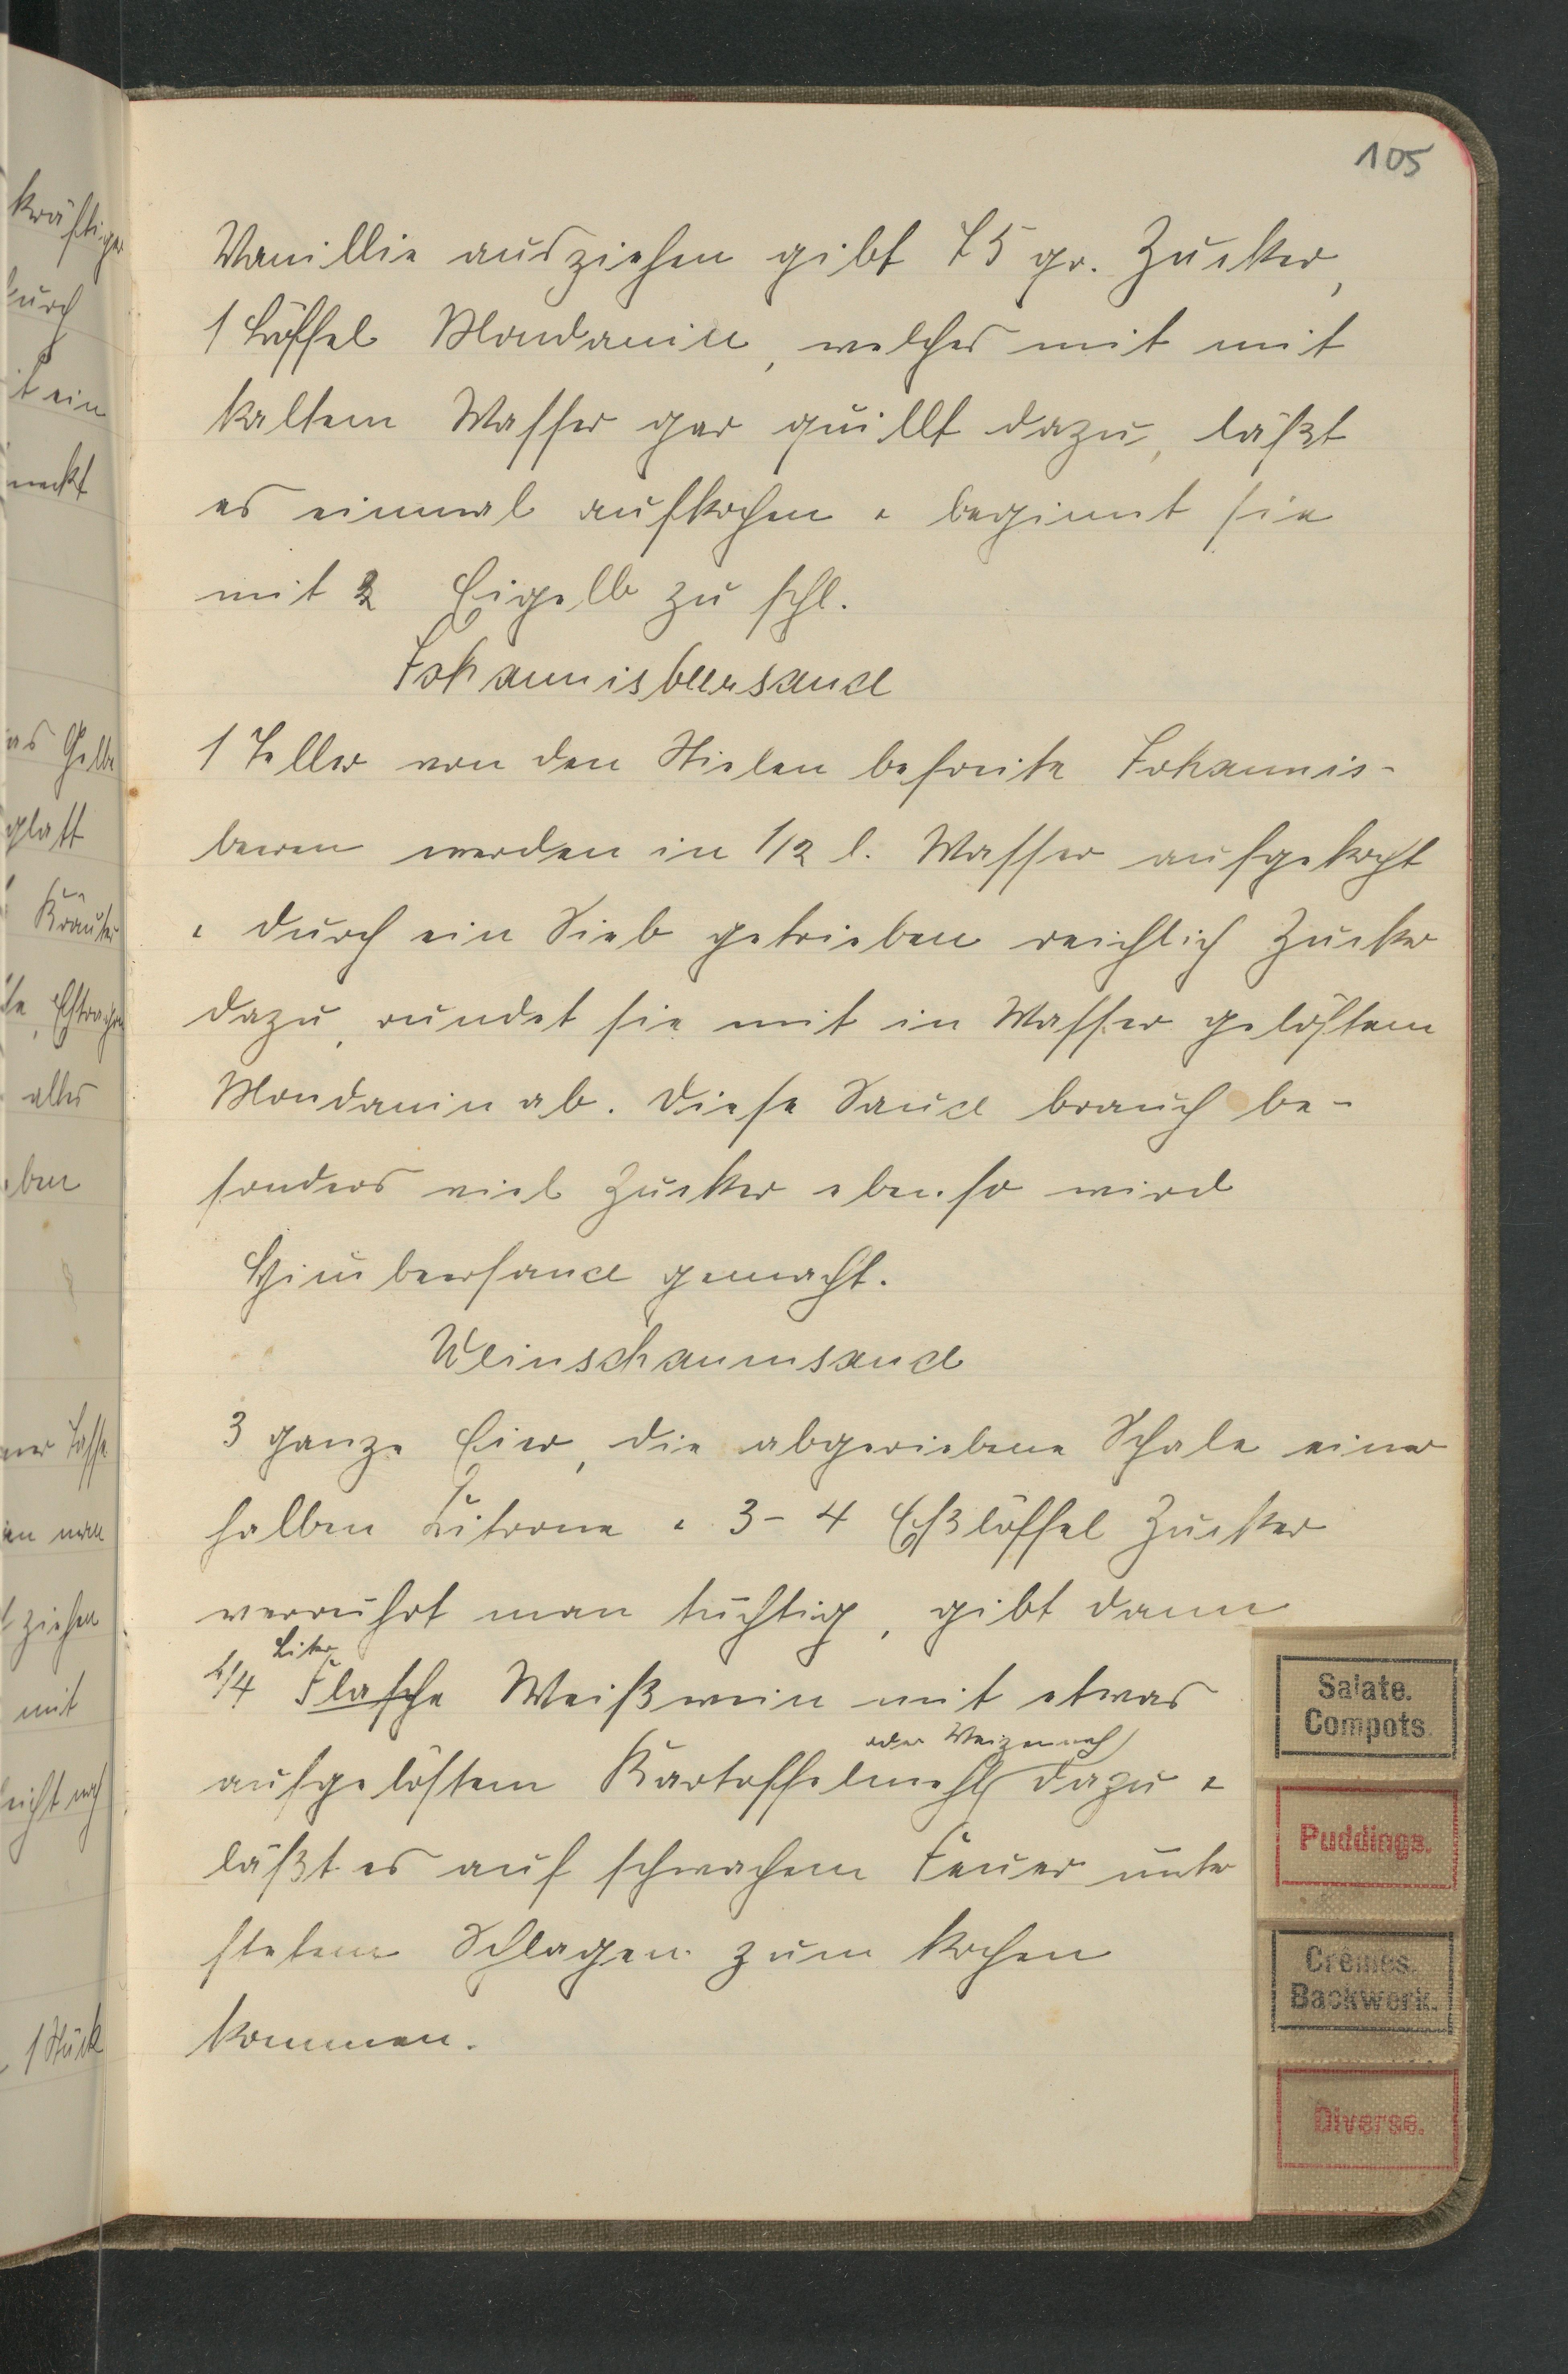 105
Vanillie ausziehen gibt 75 gr. Zucker,
1 Löffel Mondamin, welches mit mit
kaltem Wasser gar quillt dazu, läßt
es einmal aufkochen u beginnt sie
mit 2 Eigelb zu schl.
Johannisbeersauce
1 Teller von den Stielen befreite Johannis-
beeren werden in 1/2 l. Wasser aufgekocht
u durch ein Sieb getrieben reichlich Zucker
dazu, rundet sie mit in Wasser gelöstem
Mondamin ab. Diese Sauce brauch be-
sonders viel Zucker ebenso wird
Himbeersauce gemacht.
Weinschaumsauce
3 ganze Eier, die abgeriebene Schale einer
halben Zitrone u 3-4 Eßlöffel Zucker
verrührt man tüchtig, gibt dann
Liter
1/4 Flasche Weißwein mit etwas
oder Weizenmehl
aufgelöstem Kartoffelmehl dazu u
läßt es auf schwachem Feuer unter
stetem Schlagen zum kochen
kommen.
Salate.
Compots.
Puddings.
Crêmes.
Backwerk.
Diverse.
kräftiger
durch
mit ein
das Gelbe
glatt
Kräuter
Estragon
alles
einer Tasse
ziehen
mit
1 Stück